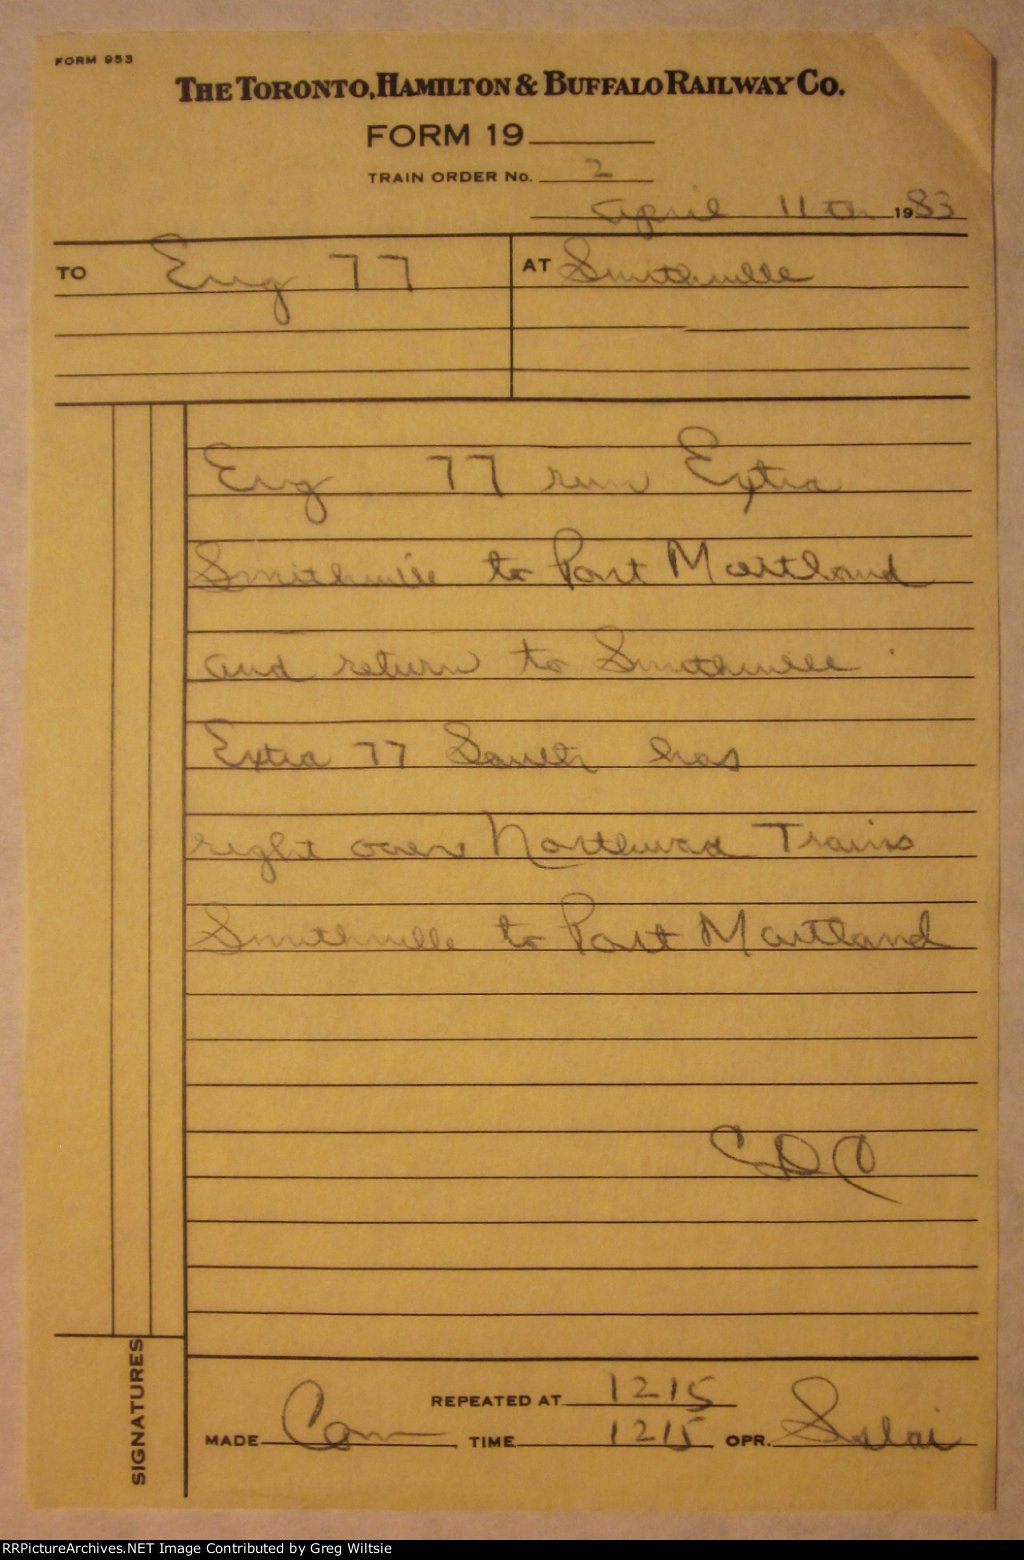 FORM 953
THE TORONTO, HAMILTON & BUFFALO RAILWAY CO.
FORM 19
TRAIN ORDER No. 2
April 11th 1983
TO Eng 77 AT Smithville
Eng 77 run Extra
Smithville to Port Maitland
and return to Smithville .
Extra 77 South has
right over Northward Trains
Smithville to Port Maitland
REPEATED AT 1215
MADE Com TIME 1215 OPR.
SIGNATURES
RRPictureArchives.NET Image Contributed by Greg Wiltsie